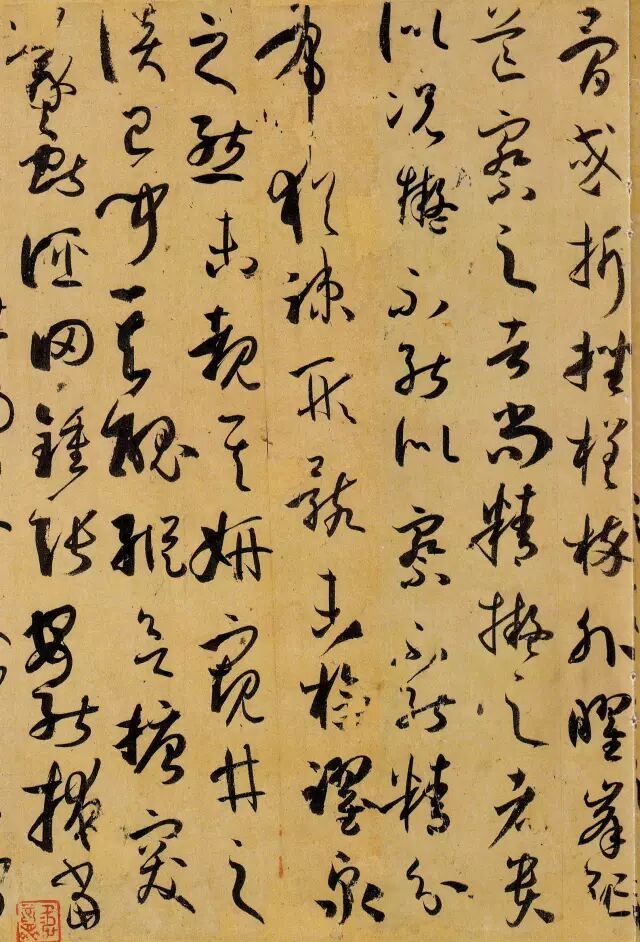 骨或折挫槎枿外曜峯
芒察之者尚精擬之者貴
似況擬不能似察不能精分
布猶疎形骸未檢躍泉
之態未覩其妍窺井之
談已聞其醜縱欲搪突
羲獻誣罔鍾張安能掩當